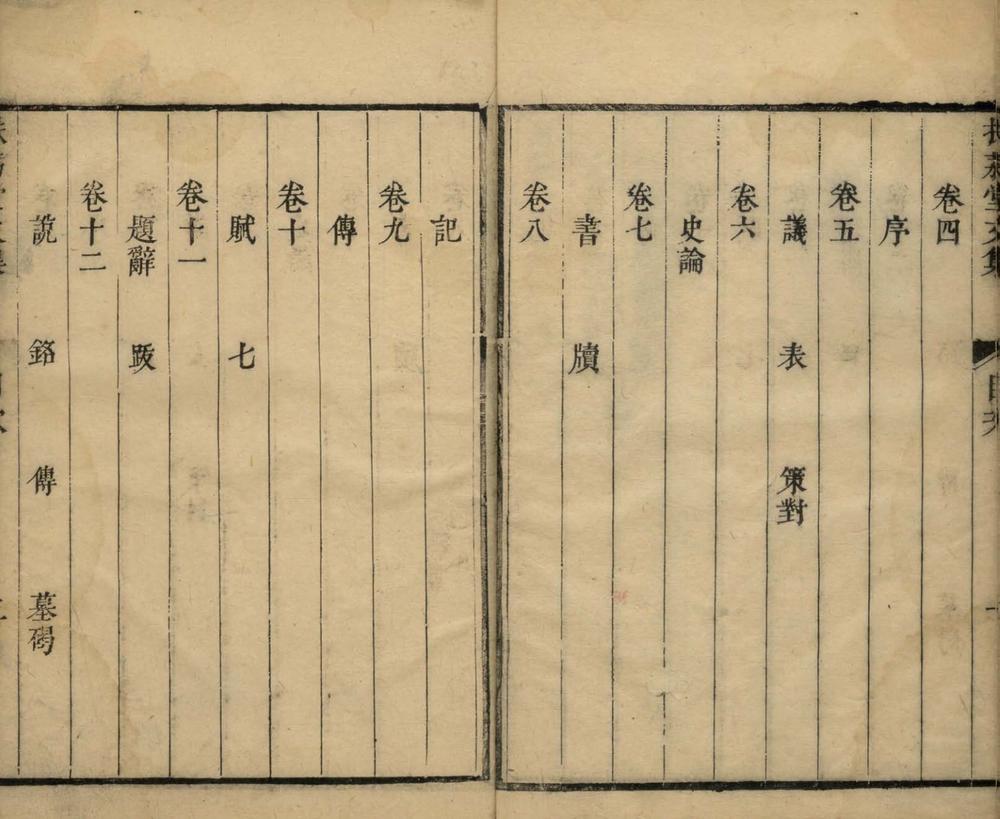 卷四
序
卷五
議 表 策對
卷六
史論
卷七
書 牘
卷八
記
卷九
傳
卷十
賦 七
卷十一
題辭 跋
卷十二
說 銘 傳 墓碣